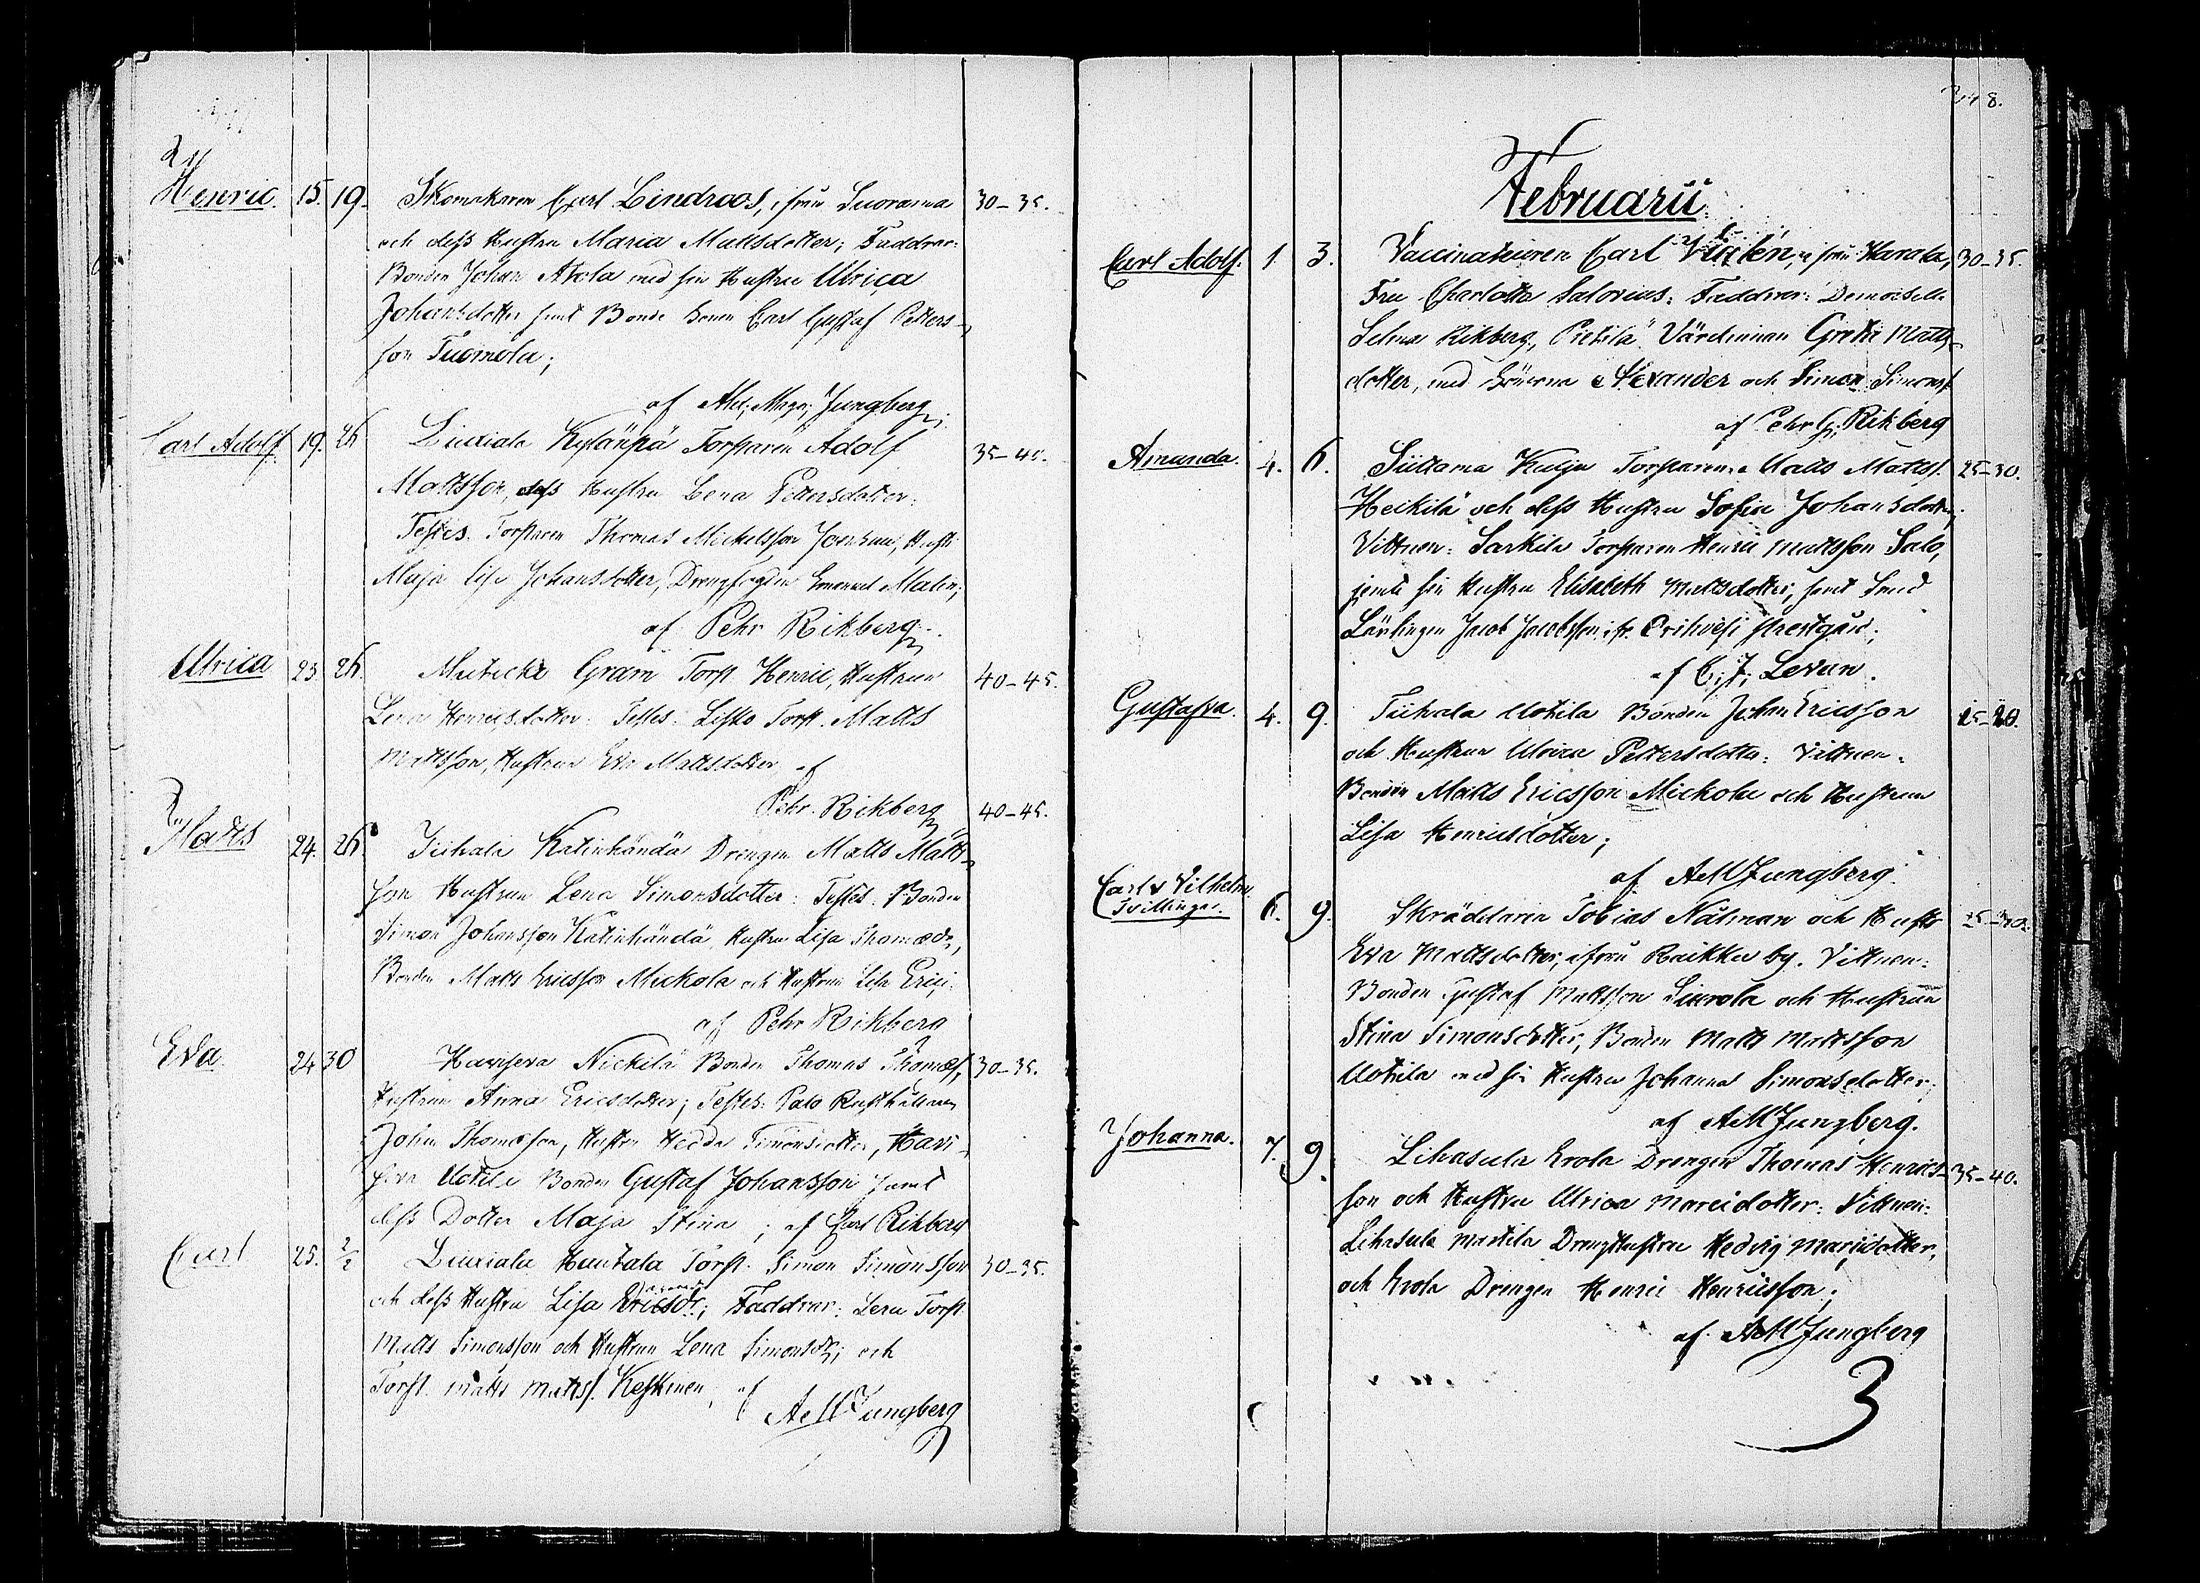 Henric. 15. 19. Skomakaren Carl Lindroos, ifrån Suorama 30-35.
och dess Hustru Maria Mattsdotter; Faddrar:
Bonden Johan Ahola med sin Hustru Ulrica
Johansdotter samt Bonde Sonen Carl Gustaf Petters-
son Tuomola;
af Ad; Magn; Jungberg;
Carl Adolf. 19. 26 Liuxiala Torparen Adolf 35-45.
Mattsson, dess Hustru Lena Pettersdotter.
Testes. Torparen Thomas Mickelsson Hustr
Maja Lisa Johansdotter, Drengfogden Emanuel Malin;
af Pehr Rikberg.
Ulrica 23 26. Gram Torp. Henric, Hustrun 40-45.
Lena Henricsdotter. Testes. Torp. Matts
Mattsson, Hustrun Eva Mattsdotter af
Pehr Rikberg 40-45.
Matts 24. 26. Tiihala Katinhändä Drengen Matts Matts-
son Hustrun Lena Simonsdotter: Testes. Bonden
Simon Johansson Katinhändä, Hustrun Lisa Thomæd;
Bonden Matts Ericsson Mickola och Hustrun Lisa
af Pehr Rikberg
Eva 24 30 Haviseva Nickilä Bonden Thomas Thomæs; 30-35.
Hustrun Anna Ericsdotter; Testes: Palo Rusthållaren
Johan Thomæson, Hustru Hedda Simonsdotter, Havi-
seva Uotila Bonden Gustaf Johansson samt
dess Dotter Maja Stina; af Carl Rikberg
Carl 25. 2/2 Liuxiala Hautala Torp. Simon Simonsson 30-35.
och dess Hustru Lisa Ericsdr; Faddrar: Torp.
Matts Simonsson och Hustrun Lena Simonsdtr; och
Torp. Matts Matts. Keskinen, af
A M Jungberg
248.
Februarii
Carl Adolf. 1 3. Vaccinateuren Carl ifrån Harala, 30-35.
Fru Charlotta Salovius: Faddrar: Demoiselle
Selma Rikberg, Pietilä Värdinnan Greta Matts-
dotter, med Sönerna Alexander och Simon Simonss.
af Pehr G; Rikberg
Amanda. 4. 6. Suttama Kuija Torparen Matts Matts. 25-30.
Heikilä och dess Hustru Sofia Johansdotter,
Vittnen: Sarkila Torparen Henric Mattsson Salo,
jemte sin Hustru Elisabeth Mattsdotter, samt Smed
Lärlingen Jacob Jacobsson ifr. Orihvesi prestgård;
af C; J; Levan.
Gustafva. 4. 9. Tiihala Uotila Bonden Johan Ericsson 25-20.
och Hustrun Ulrica Pettersdotter: Vittnen.
Bonden Matts Ericsson Mickola och Hustrun
Lisa Henricsdotter;
af A M Jungberg.
Carl & Vilhelm
Tvillingar. 6. 9. Skräddaren Tobias Nåhman och Hustr 25-30.
Eva Mattsdotter, ifrån Raikku by. Vittnen:
Bonden Gustaf Mattsson Siurola och Hustrun
Stina Simonsdotter, Bonden Matts Mattsson
Uotila med sin Hustru Johanna Simonsdotter;
af A M Jungberg.
Johanna. 7. 9. Lihasula Erola Drengen Thomas Henrics- 35-40.
son och Hustru Ulrica Marcidotter. Vittnen:
Lihasula Martila Dreng Hustrun Hedvig Marcidotter,
och Erola Drengen Henric Henricsson;
af A M Jungberg
3